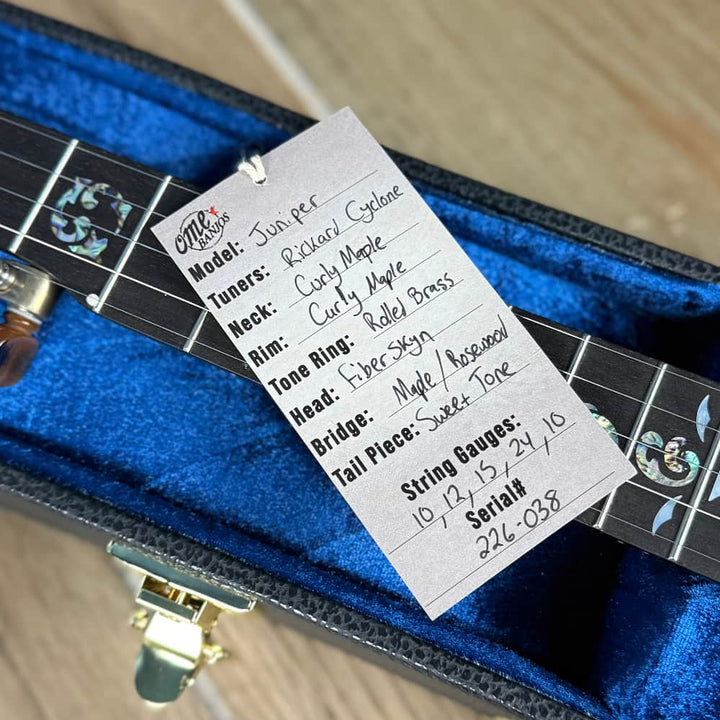 ome
BANJOS
Model: Juniper
Tuners: Rickard Cyclone
Neck: Curly Maple
Rim: Curly Maple
Tone Ring: Rolled Brass
Head: Fiber Skyn
Bridge: Maple / Rosewood
Tail Piece: Sweet Tone
String Gauges:
10, 12, 15, 24, 10
Serial#
226-038